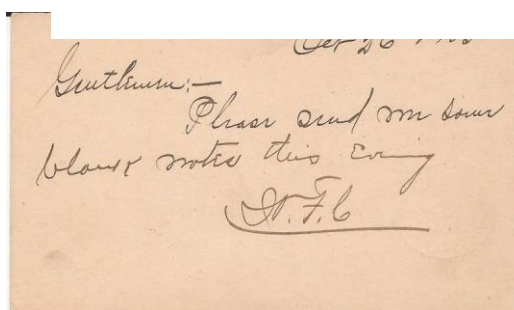 Oct 26
Gentlemen:—
Please send me some
blank notes this Evening
F. C